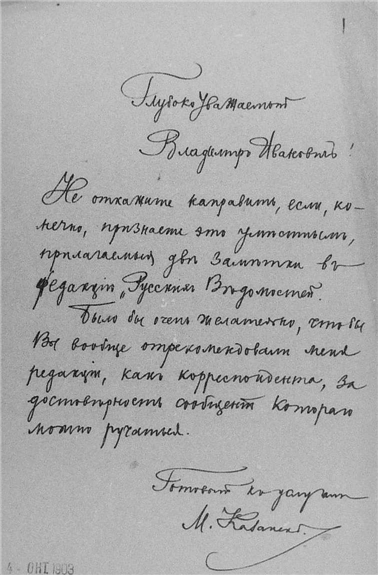 Глубокоуважаемый
Владимiръ Ивановичъ!
Не откажите направить, если, ко-
нечно, признаете это умѣстнымъ,
прилагаемыя двѣ замѣтки въ
редакцiю „Русскихъ Вѣдомостей".
Было бы очень желательно, чтобы
Вы вообще отрекомендовали меня
редакцiи, какъ корреспондента, за
достовѣрность сообщенiй котораго
можно ручаться.
Готовый къ услугамъ
М.
4 - ОКТ. 1903